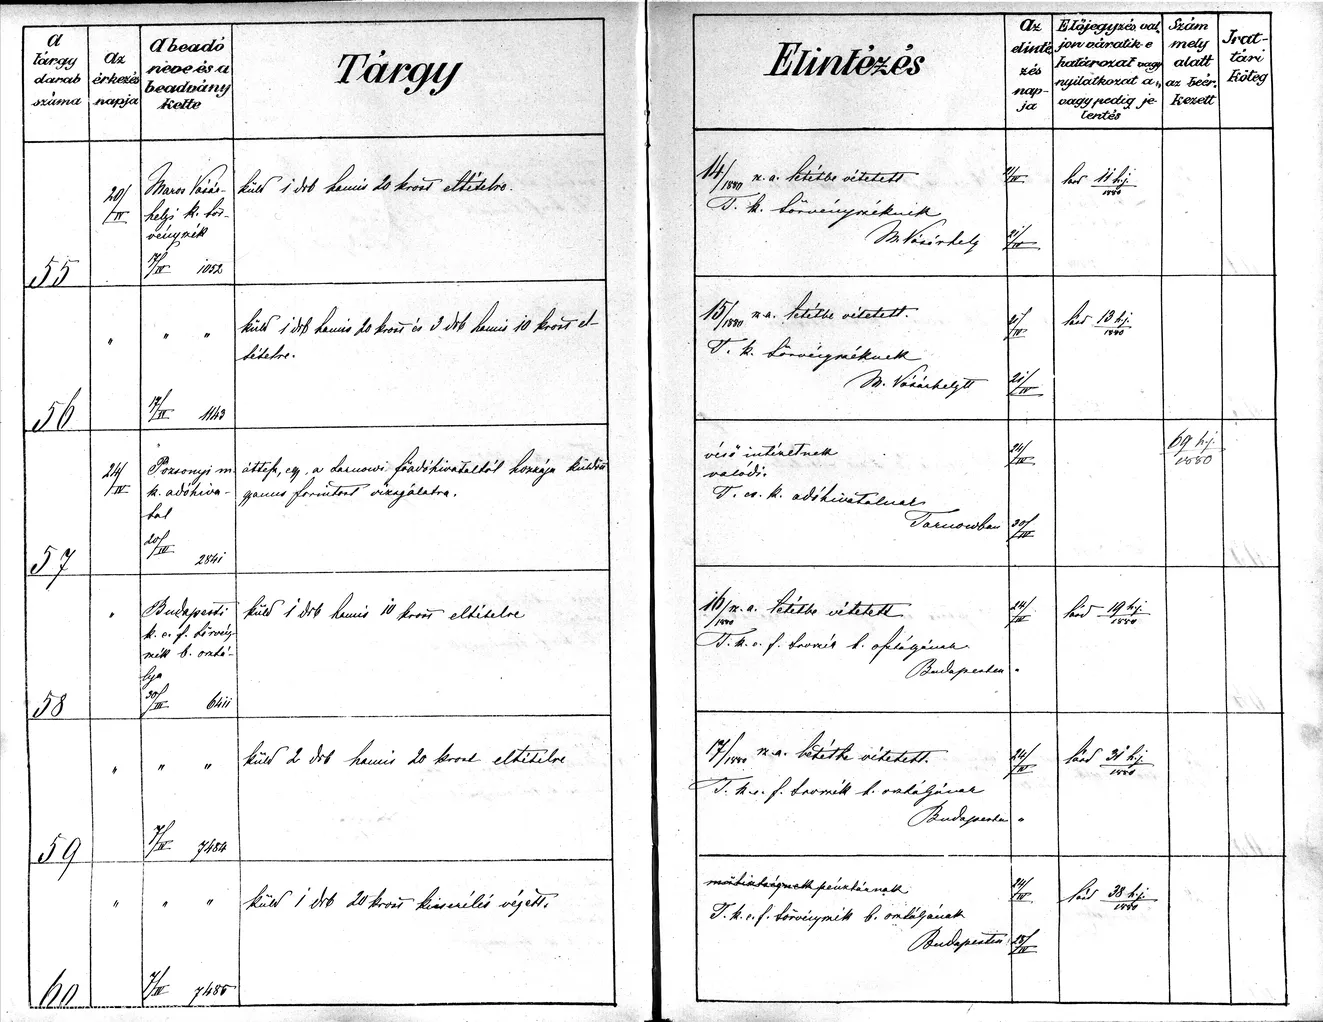 A tárgy darab száma
Az érkezés napja
A beadó neve és a beadvány kelte
Tárgy
Elintézés
Az elintézés napja
Szám mely alatt az beérkezett
Irattári köteg
55
20/IV
Maros Vásár-
helyi k. tör-
vényszék
7/IV 1052
küld 1 drb hamis 20 krost eltételre.
14/1880 n. a. letétbe vétetett
T. k. Törvényszéknek
M. Vásárhely
21/IV
21/IV
lásd 11 h.j./1880
56
" " "
17/IV 1143
küld 1 drb hamis 20 krost és 3 drb hamis 10 krost el-
tételre.
15/1880 n. a. letétbe vétetett.
T. k. Törvényszéknek
M. Vásárhelytt
21/IV
21/IV
lásd 13 h.j./1880
57
24/IV
Pozsonyi m.
k. adóhiva-
tal
20/IV 2841
a tarnowi főadóhivataltól hozzája küldött
gyanus forintost vizsgálatra.
véső intézetnek
valódi.
T. cs. k. adóhivatalnak
Tarnowban
24/IV
30/IV
69 h.j./1880
58
"
Budapesti
k. e. f. törvény-
szék b. osztá-
lya
6411
küld 1 drb hamis 10 krost eltételre
16/1880 n. a. letétbe vétetett
T. k. e. f. tvszék b. osztályának
Budapesten "
24/IV
lásd 19 h.j./1880
59
" " "
7/IV 7484
küld 2 drb hamis 20 krost eltételre
17/1880 n. a. letétbe vétetett.
T. k. e. f. tvszék b. osztályának
Budapesten "
24/IV
lásd 31 h.j./1880
60
" " "
7/IV 7485
küld 1 drb 20 krost kicserélés végett.
pénztárnak
T. k. e. f. törvényszék b. osztályának
Budapesten
24/IV
28/IV
lásd 38 h.j./1880